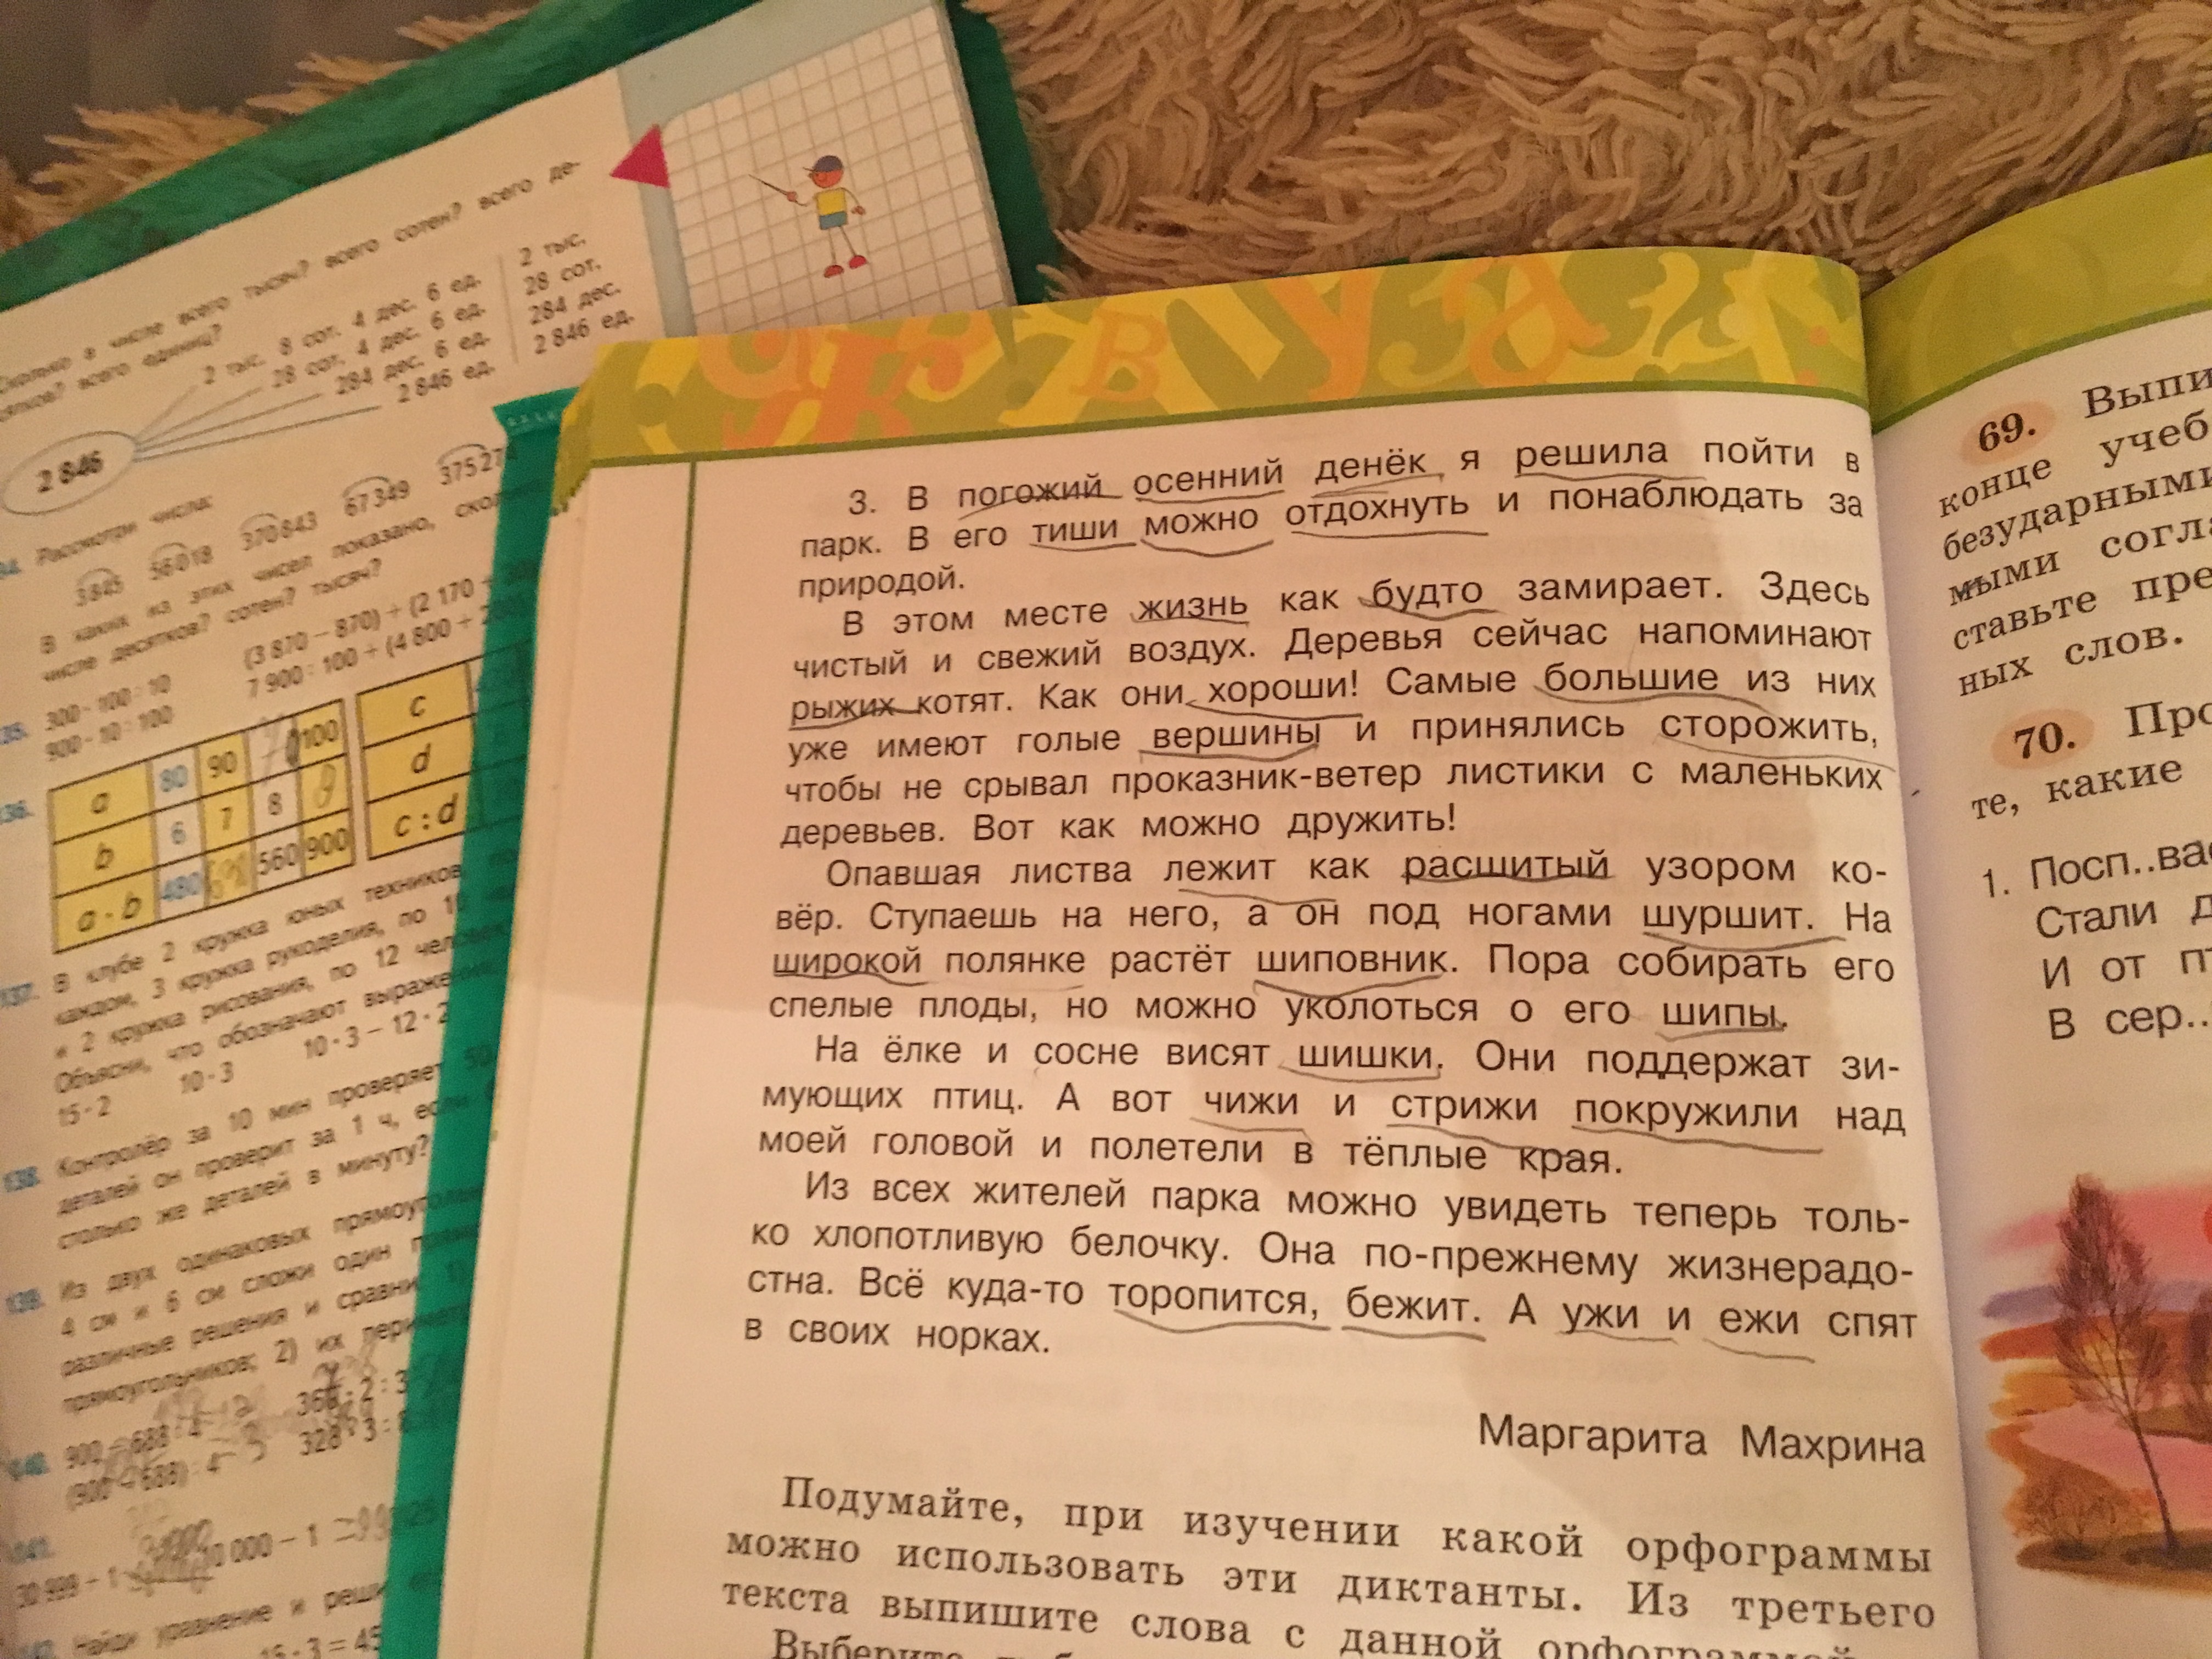 сколько в числе всего тысяч? всего сотен? всего де-
сятков? всего единиц?
2 846
2 тыс. 8 сот. 4 дес. 6 ед.
28 сот. 4 дес. 6 ед.
284 дес. 6 ед.
2 846 ед.
2 тыс.
28 сот.
284 дес.
2 846 ед.
Рассмотри числа:
3 845 56 018 370 843 67 349
В каких из этих чисел показано,
числе десятков? сотен? тысяч?
300 · 100 : 10
900 · 10 : 100
(3 870 – 870) + (2 170 +
7 900 : 100 + (4 800 +
a 80 90 100
b 6 7 8
a · b 480 560 900
c
d
c : d
137. В клубе 2 кружка юных техников, по
каждом, 3 кружка рукоделия, по 10
и 2 кружка рисования, по 12 человек
Объясни, что обозначают выражения:
15 · 2 10 · 3 10 · 3 – 12 · 2
138. Контролёр за 10 мин проверяет 50
деталей он проверит за 1 ч, если
столько же деталей в минуту?
139. Из двух одинаковых прямоугольников
4 см и 6 см сложи один
различные решения и сравни
прямоугольников; 2) их
900 – 688 : 4
(900 – 688) : 4
328 : 3
30 999 – 1
Найди уравнение и реши
15 · 3 = 45
3. В погожий осенний денёк я решила пойти в
парк. В его тиши можно отдохнуть и понаблюдать за
природой.
В этом месте жизнь как будто замирает. Здесь
чистый и свежий воздух. Деревья сейчас напоминают
рыжих котят. Как они хороши! Самые большие из них
уже имеют голые вершины и принялись сторожить,
чтобы не срывал проказник-ветер листики с маленьких
деревьев. Вот как можно дружить!
Опавшая листва лежит как расшитый узором ко-
вёр. Ступаешь на него, а он под ногами шуршит. На
широкой полянке растёт шиповник. Пора собирать его
спелые плоды, но можно уколоться о его шипы.
На ёлке и сосне висят шишки. Они поддержат зи-
мующих птиц. А вот чижи и стрижи покружили над
моей головой и полетели в тёплые края.
Из всех жителей парка можно увидеть теперь толь-
ко хлопотливую белочку. Она по-прежнему жизнерадо-
стна. Всё куда-то торопится, бежит. А ужи и ежи спят
в своих норках.
Маргарита Махрина
Подумайте, при изучении какой орфограммы
можно использовать эти диктанты. Из третьего
текста выпишите слова с данной орфограммой
Выберите
69. Выпи
конце учеб
безударными
мыми согла
ставьте пре
ных слов.
70. Про
те, какие
1. Посп..вас
Стали д
И от пт
В сер..